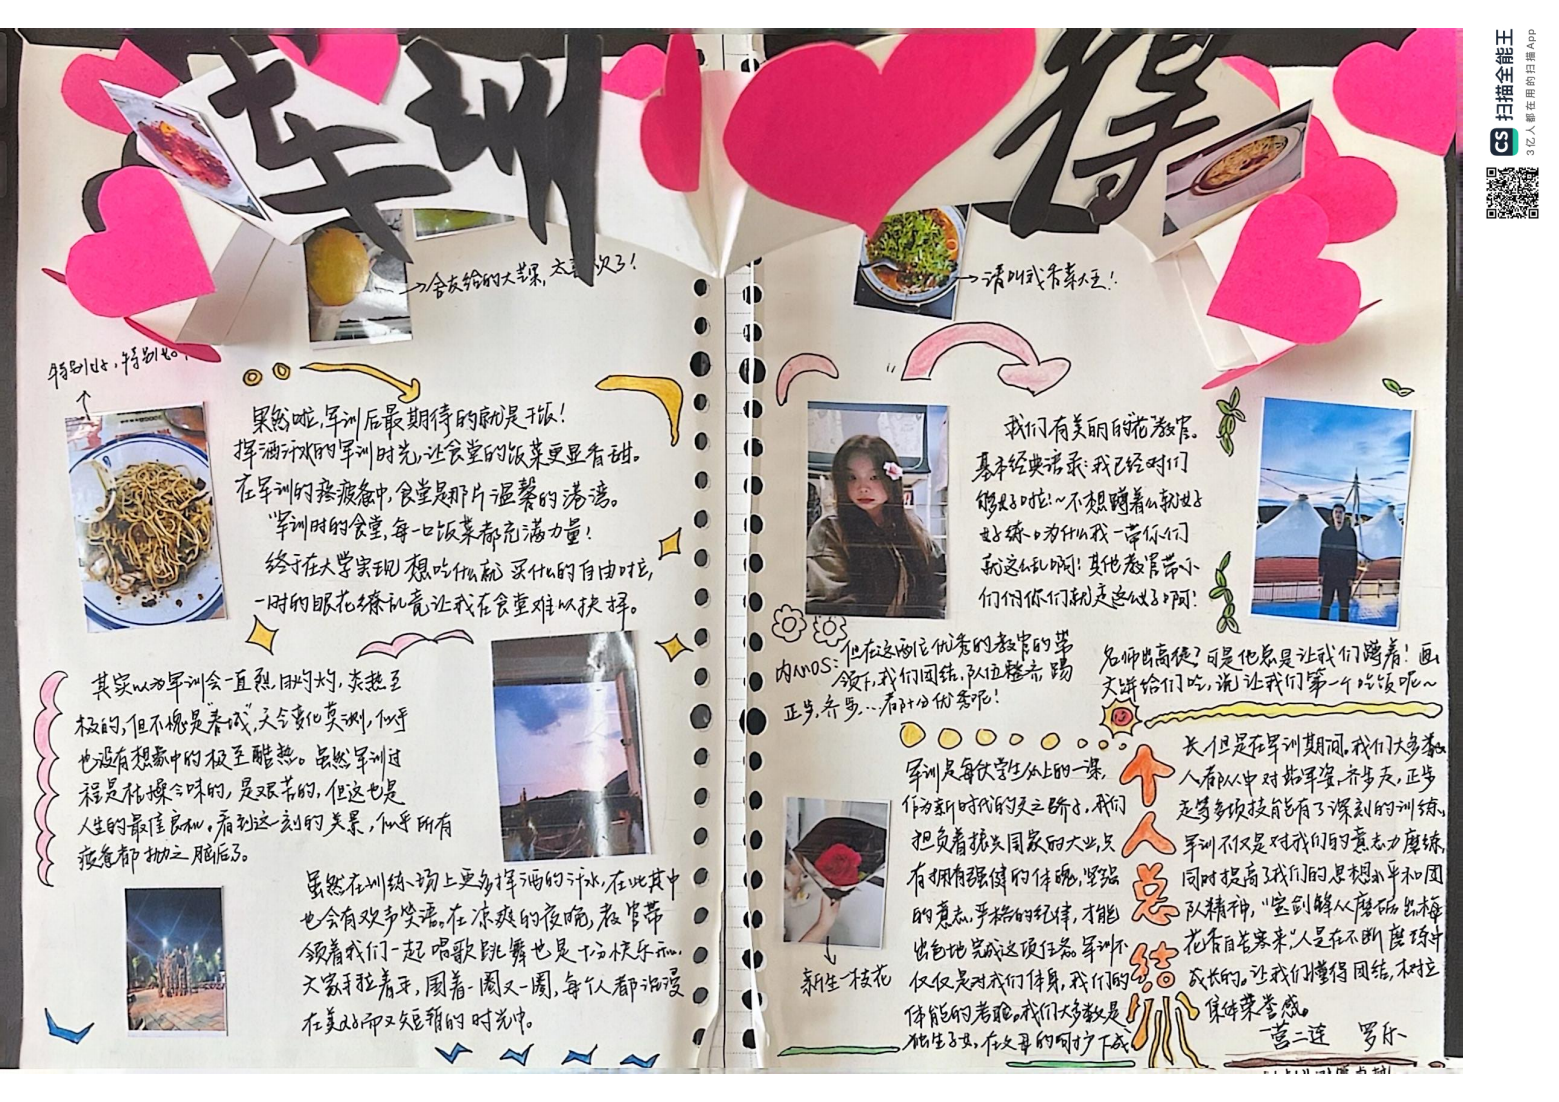 军训
得
舍友给的大芒果,太喜欢了!
请叫我香菜大王!
特别好,特别好
果然啦,军训后最期待的就是干饭!
挥洒汗水的军训时光,让食堂的饭菜更显香甜。
在军训的疲惫中,食堂是那片温馨的港湾。
军训时的食堂,每一口饭菜都充满力量!
终于在大学实现想吃什么就买什么的自由啦,
一时的眼花缭乱竟让我在食堂难以抉择。
其实以为军训会一直烈日灼灼,炎热至
极的,但不愧是"春城",天气变化莫测,似乎
也没有想象中的极至酷热。虽然军训过
程是枯燥乏味的,是艰苦的,但这也是
人生的最佳良机。看到这一刻的美景,似乎所有
疲惫都抛之脑后了。
虽然在训练场上更多挥洒的汗水,在此其中
也会有欢声笑语。在凉爽的夜晚,教官带
领着我们一起唱歌跳舞也是十分快乐
大家手拉着手,围着一圈又一圈,每个人都沉浸
在美好而又短暂的时光中。
我们有美丽的"花"教官。
基本经典语录:我已经对你们
够好啦!~不想蹲着么就好
好练。为什么我一带你们
就这么乱啊!其他教官带
们
但在这两位优秀的教官的带
内心OS:
领下,我们团结,队伍整齐,踢
正步,齐步...都十分优秀呢!
名师出高徒?可是他总是让我们蹲着!画
大饼给们吃,说让我们第一个吃饭呢~
新生一枝花
军训是每位大学生必上的一课,
作为新时代的天之骄子,我们
担负着振兴国家的大业,只
有拥有强健的体魄,坚强
的意志,严格的纪律,才能
出色地完成这项任务。军训不
仅仅是对我们体身,我们的
体能的考验。我们大多数是
独生子女,在父母的呵护下成
个人总结
长,但是在军训期间,我们大多数
人都从中对站军姿,齐步走,正步
走等多项技能有了深刻的训练,
军训不仅是对我们的意志力磨练,
同时提高了我们的思想水平和团
队精神,"宝剑锋从磨砺出,梅
花香自苦寒来"人是在不断磨练中
成长的。让我们懂得团结,树立
集体荣誉感。
一营二连 罗乐
CS 扫描全能王
3亿人都在用的扫描App